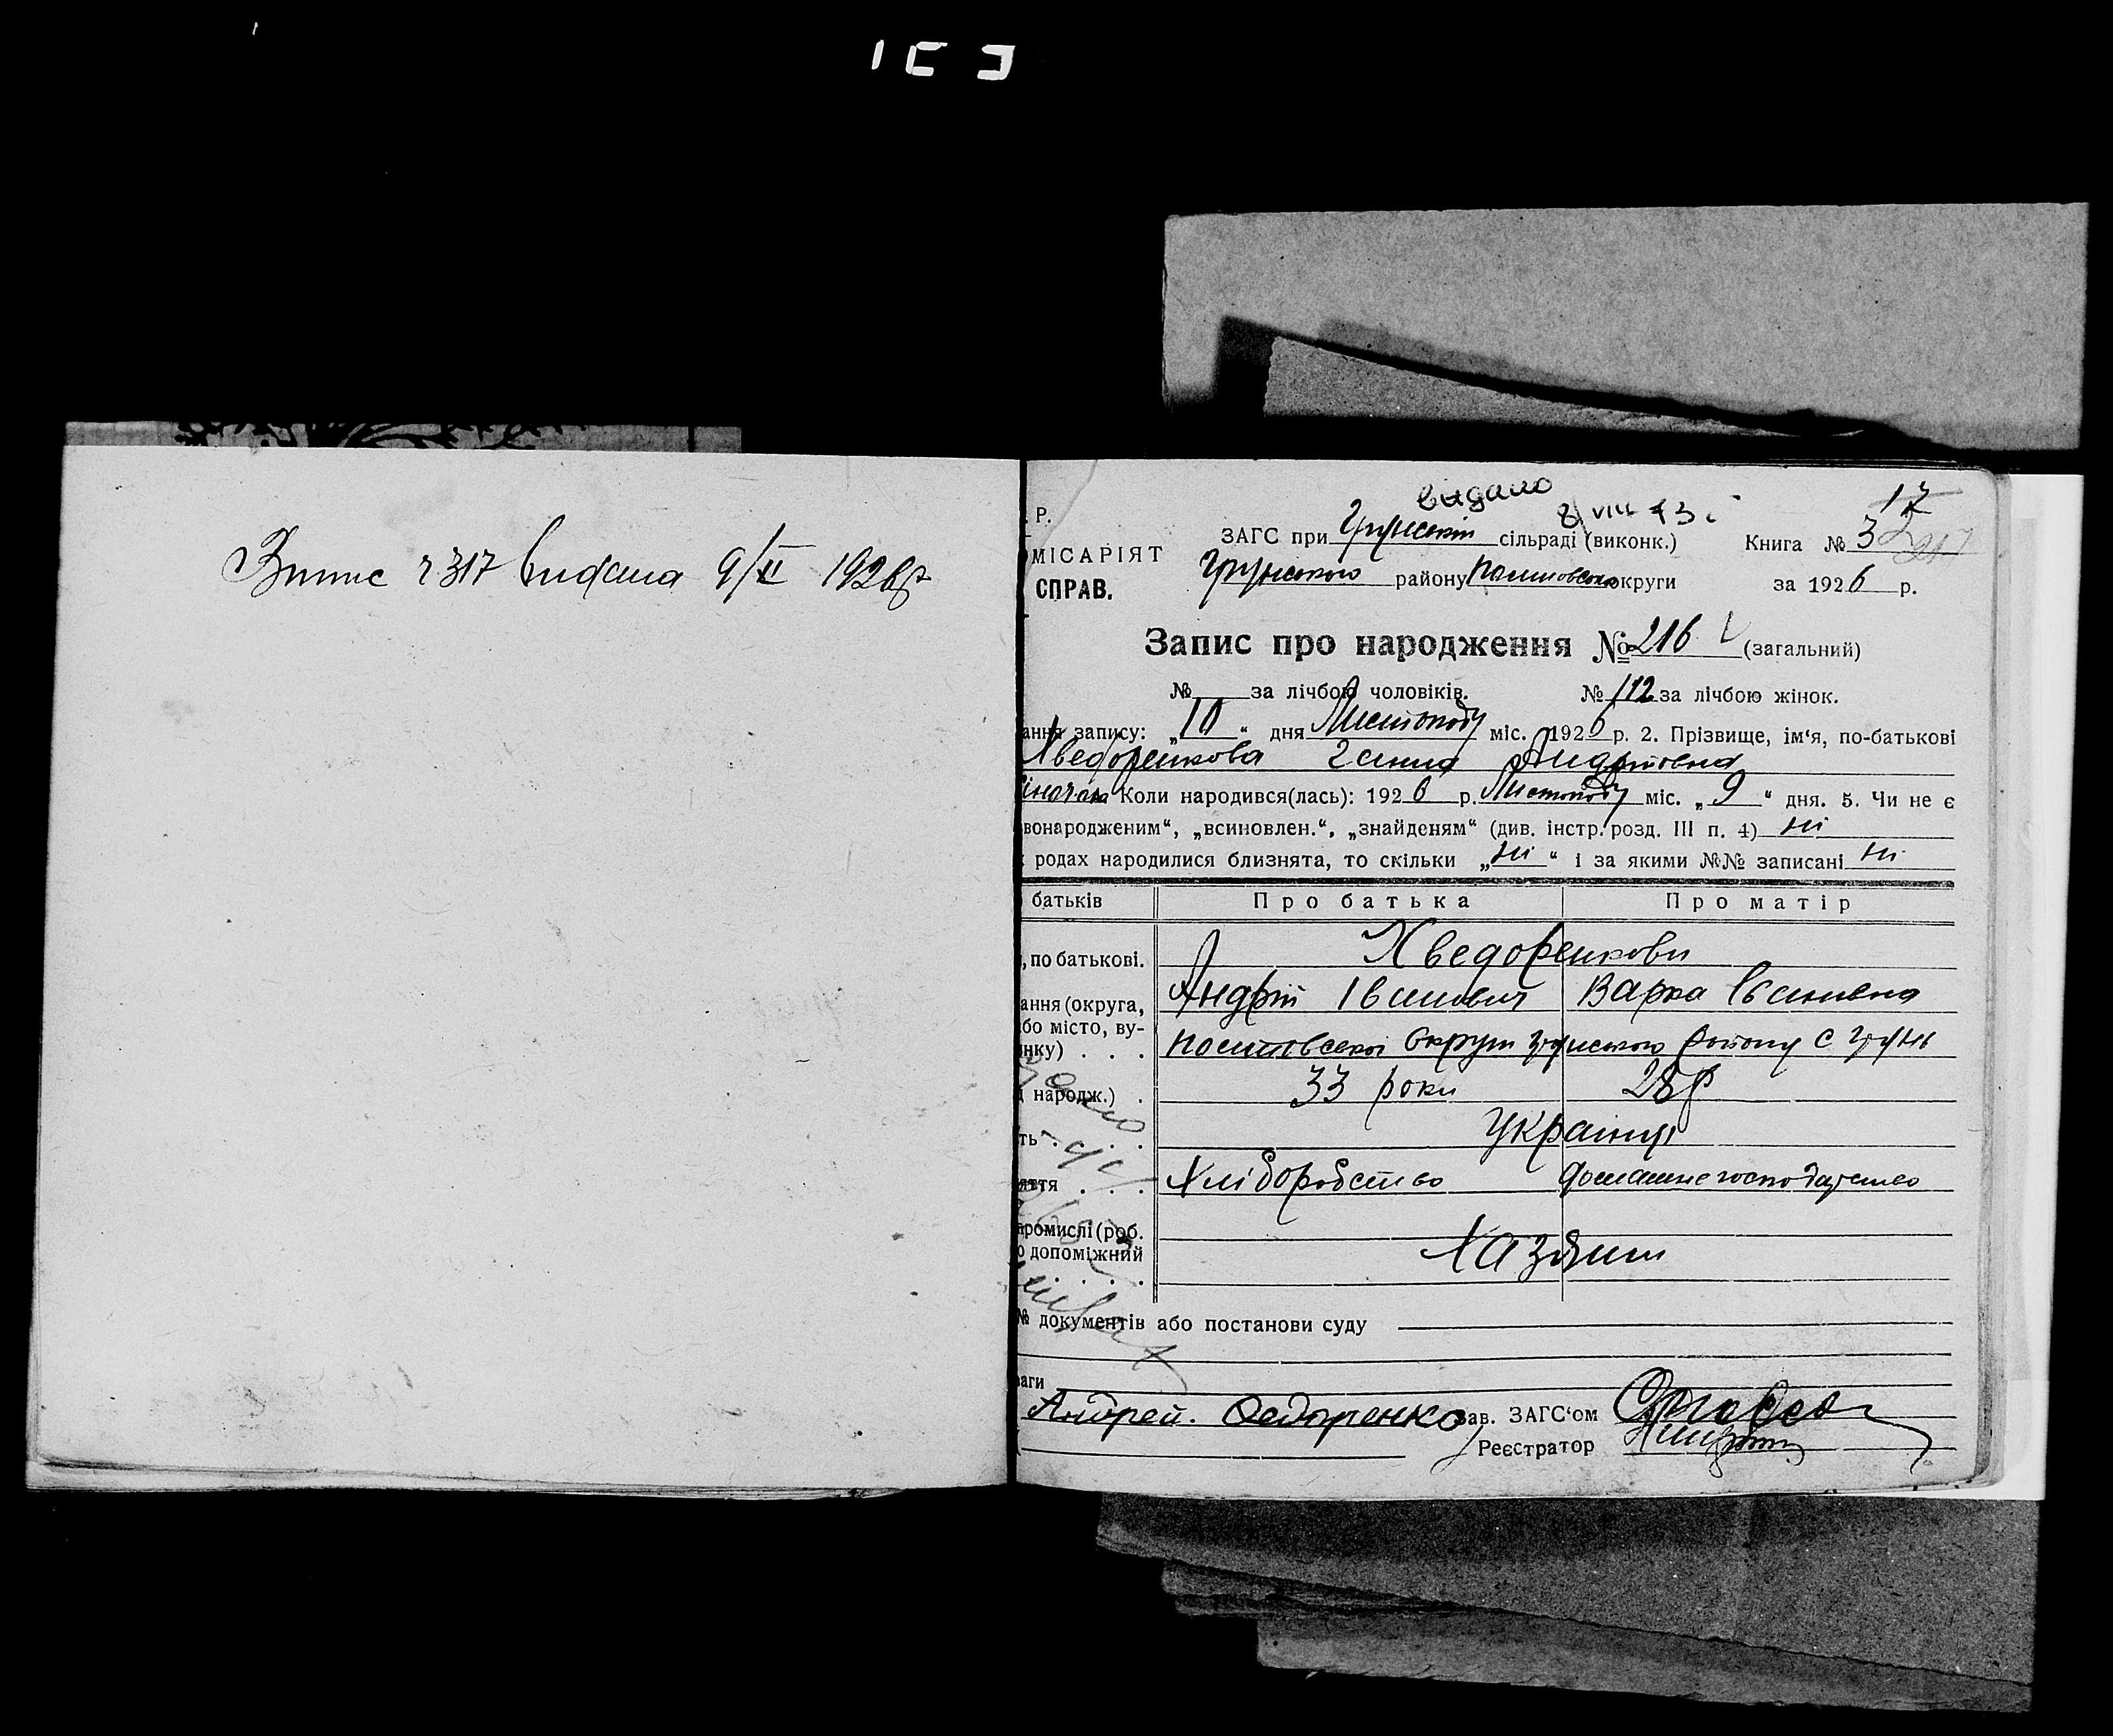 Випис ч 317 видана 9/II 1926р
видано
8/VIII 43 г
17
Р.
ЗАГС при Грунській сільраді (виконк.) Книга № 3
МІСАРІЯТ
Грунського району округи за 1926 р.
СПРАВ.
Запис про народження № 216 (загальний)
№ за лічбою чоловіків. № 112 за лічбою жінок.
ання запису: „10“ дня Листопаду міс. 1926 р. 2. Прізвище, ім‘я, по-батькові
Хведоренкова Ганна Андріївна
Коли народився(лась): 1926 р. Листопаду міс. „9“ дня. 5. Чи не є
вонародженим“, „всиновлен.“, „знайденям“ (див. інстр. розд. III п. 4) ні
родах народилися близнята, то скільки „ні“ і за якими №№ записані ні
батьків Про батька Про матір
, по батькові. Хведоренкови
Андрій Іванович Варка Іванивна
ання (округа,
бо місто, ву-
инку) . . . округи Грунського району с Грунь
народж.) . 33 роки 28 р
ть . . . Українці
яття . . . Хліборобство домашне господарство
промислі (роб.
о допоміжний Хазяіни
. . . .
№ документів або постанови суду
ваги
Андрей. Федоренко Зав. ЗАГС‘ом
Реєстратор